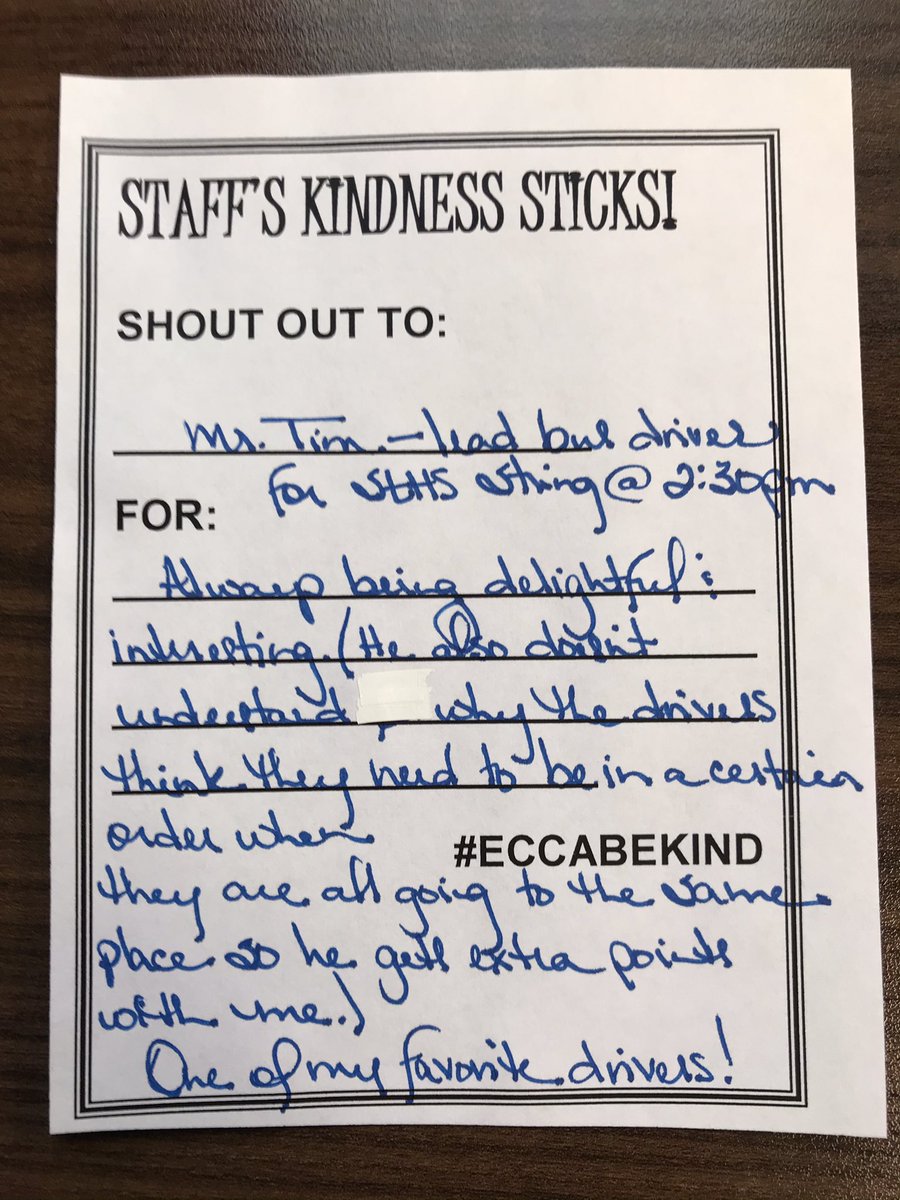 STAFF'S KINDNESS STICKS!
SHOUT OUT TO:
Mr. Tim - lead bus driver
for StHS string @ 2:30pm
FOR:
Always being delightful &
interesting. (He also doesn't
understand why the drivers
think they need to be in a certain
order when
#ECCABEKIND
they are all going to the same
place so he gets extra points
with me.)
One of my favorite drivers!